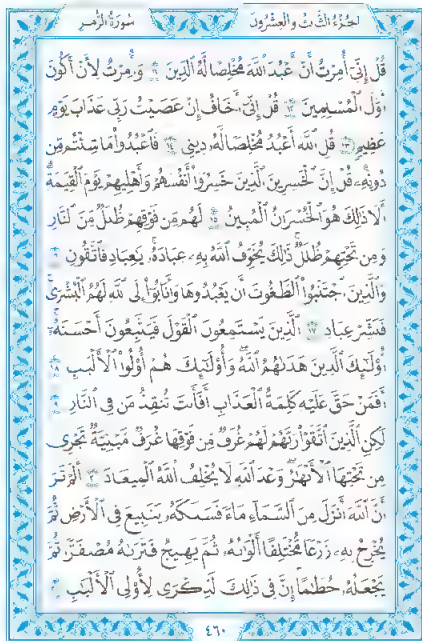 الجزء الثالث والعشرون سورة الزمر
قُلْ إِنِّي أُمِرْتُ أَنْ أَعْبُدَ اللَّهَ مُخْلِصًا لَّهُ الدِّينَ ١١ وَأُمِرْتُ لِأَنْ أَكُونَ
أَوَّلَ الْمُسْلِمِينَ ١٢ قُلْ إِنِّي أَخَافُ إِنْ عَصَيْتُ رَبِّي عَذَابَ يَوْمٍ
عَظِيمٍ ١٣ قُلِ اللَّهَ أَعْبُدُ مُخْلِصًا لَّهُ دِينِي ١٤ فَاعْبُدُوا مَا شِئْتُم مِّن
دُونِهِ قُلْ إِنَّ الْخَاسِرِينَ الَّذِينَ خَسِرُوا أَنفُسَهُمْ وَأَهْلِيهِمْ يَوْمَ الْقِيَامَةِ
أَلَا ذَٰلِكَ هُوَ الْخُسْرَانُ الْمُبِينُ ١٥ لَهُم مِّن فَوْقِهِمْ ظُلَلٌ مِّنَ النَّارِ
وَمِن تَحْتِهِمْ ظُلَلٌ ذَٰلِكَ يُخَوِّفُ اللَّهُ بِهِ عِبَادَهُ يَٰعِبَادِ فَاتَّقُونِ ١٦
وَالَّذِينَ اجْتَنَبُوا الطَّٰغُوتَ أَن يَعْبُدُوهَا وَأَنَابُوا إِلَى اللَّهِ لَهُمُ الْبُشْرَىٰ
فَبَشِّرْ عِبَادِ ١٧ الَّذِينَ يَسْتَمِعُونَ الْقَوْلَ فَيَتَّبِعُونَ أَحْسَنَهُ
أُولَٰئِكَ الَّذِينَ هَدَىٰهُمُ اللَّهُ وَأُولَٰئِكَ هُمْ أُولُوا الْأَلْبَٰبِ ١٨
أَفَمَنْ حَقَّ عَلَيْهِ كَلِمَةُ الْعَذَابِ أَفَأَنتَ تُنقِذُ مَن فِي النَّارِ ١٩
لَٰكِنِ الَّذِينَ اتَّقَوْا رَبَّهُمْ لَهُمْ غُرَفٌ مِّن فَوْقِهَا غُرَفٌ مَّبْنِيَّةٌ تَجْرِي
مِن تَحْتِهَا الْأَنْهَٰرُ وَعْدَ اللَّهِ لَا يُخْلِفُ اللَّهُ الْمِيعَادَ ٢٠ أَلَمْ تَرَ
أَنَّ اللَّهَ أَنزَلَ مِنَ السَّمَاءِ مَاءً فَسَلَكَهُ يَنَٰبِيعَ فِي الْأَرْضِ ثُمَّ
يُخْرِجُ بِهِ زَرْعًا مُّخْتَلِفًا أَلْوَٰنُهُ ثُمَّ يَهِيجُ فَتَرَىٰهُ مُصْفَرًّا ثُمَّ
يَجْعَلُهُ حُطَٰمًا إِنَّ فِي ذَٰلِكَ لَذِكْرَىٰ لِأُولِي الْأَلْبَٰبِ ٢١
٤٦٠